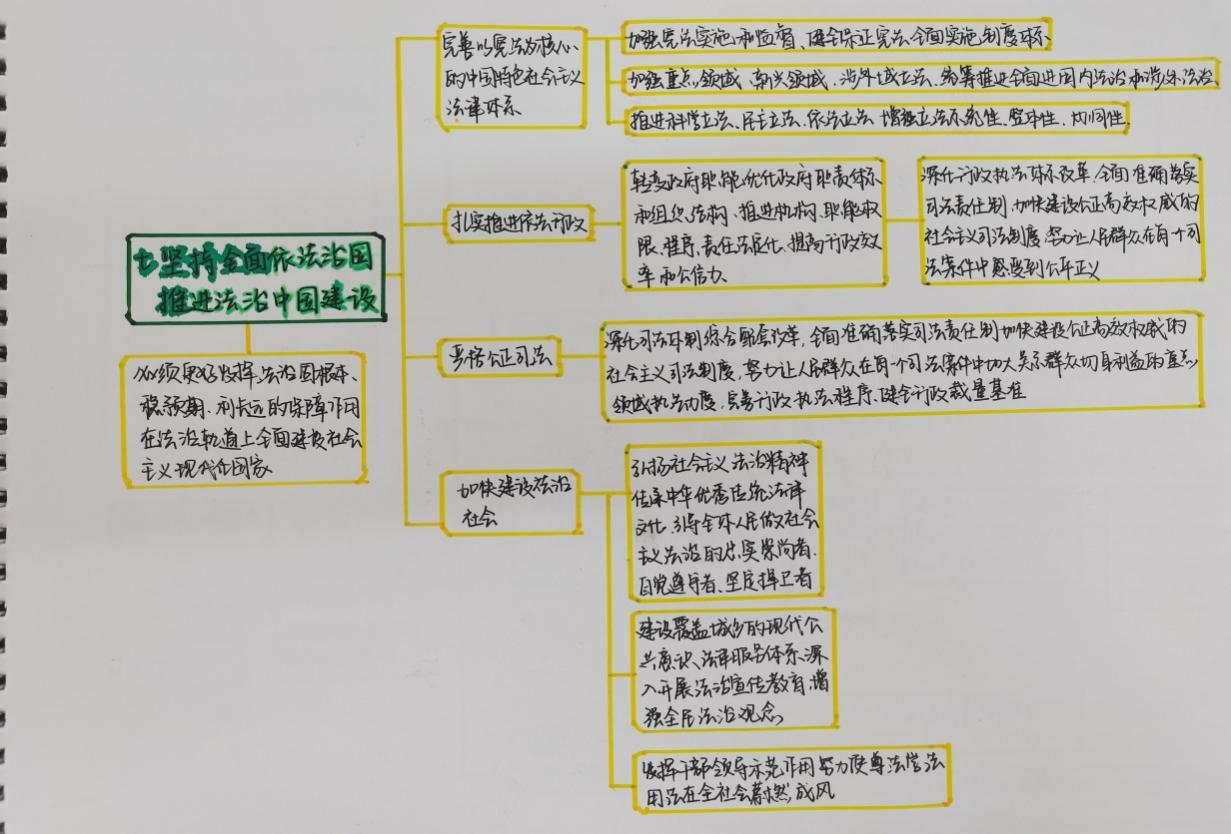 七坚持全面依法治国
推进法治中国建设
必须更好发挥法治固根本、
稳预期、利长远的保障作用
在法治轨道上全面建设社会
主义现代化国家
完善以宪法为核心
的中国特色社会主义
法律体系
加强宪法实施和监督、健全保证宪法全面实施制度体系
加强重点领域、新兴领域、涉外域立法、统筹推进全面进国内法治和涉外法治
推进科学立法、民主立法、依法立法 增强立法系统性、整体性、协同性
扎实推进依法行政
转变政府职能优化政府职责体系
和组织结构、推进机构、职能权
限、程序、责任法定化、提高行政效
率和公信力
深化行政执法体系改革、全面准确落实
司法责任制 加快建设公正高效权威的
社会主义司法制度、努力让人民群众在每一个司
法案件中感受到公平正义
严格公正司法
深化司法体制综合配套改革、全面准确落实司法责任制加快建设公正高效权威的
社会主义司法制度、努力让人民群众在每一个司法案件中加大关系群众切身利益的重点
领域执法力度、完善行政执法程序、健全行政裁量基准
加快建设法治
社会
弘扬社会主义法治精神
传承中华优秀传统法律
文化、引导全体人民做社会
主义法治的忠实崇尚者、
自觉遵守者、坚定捍卫者
建设覆盖城乡的现代公
共 法律服务体系、深
入开展法治宣传教育、增
强全民法治观念
发挥干部领导示范作用努力使尊法学法
用法在全社会蔚然成风